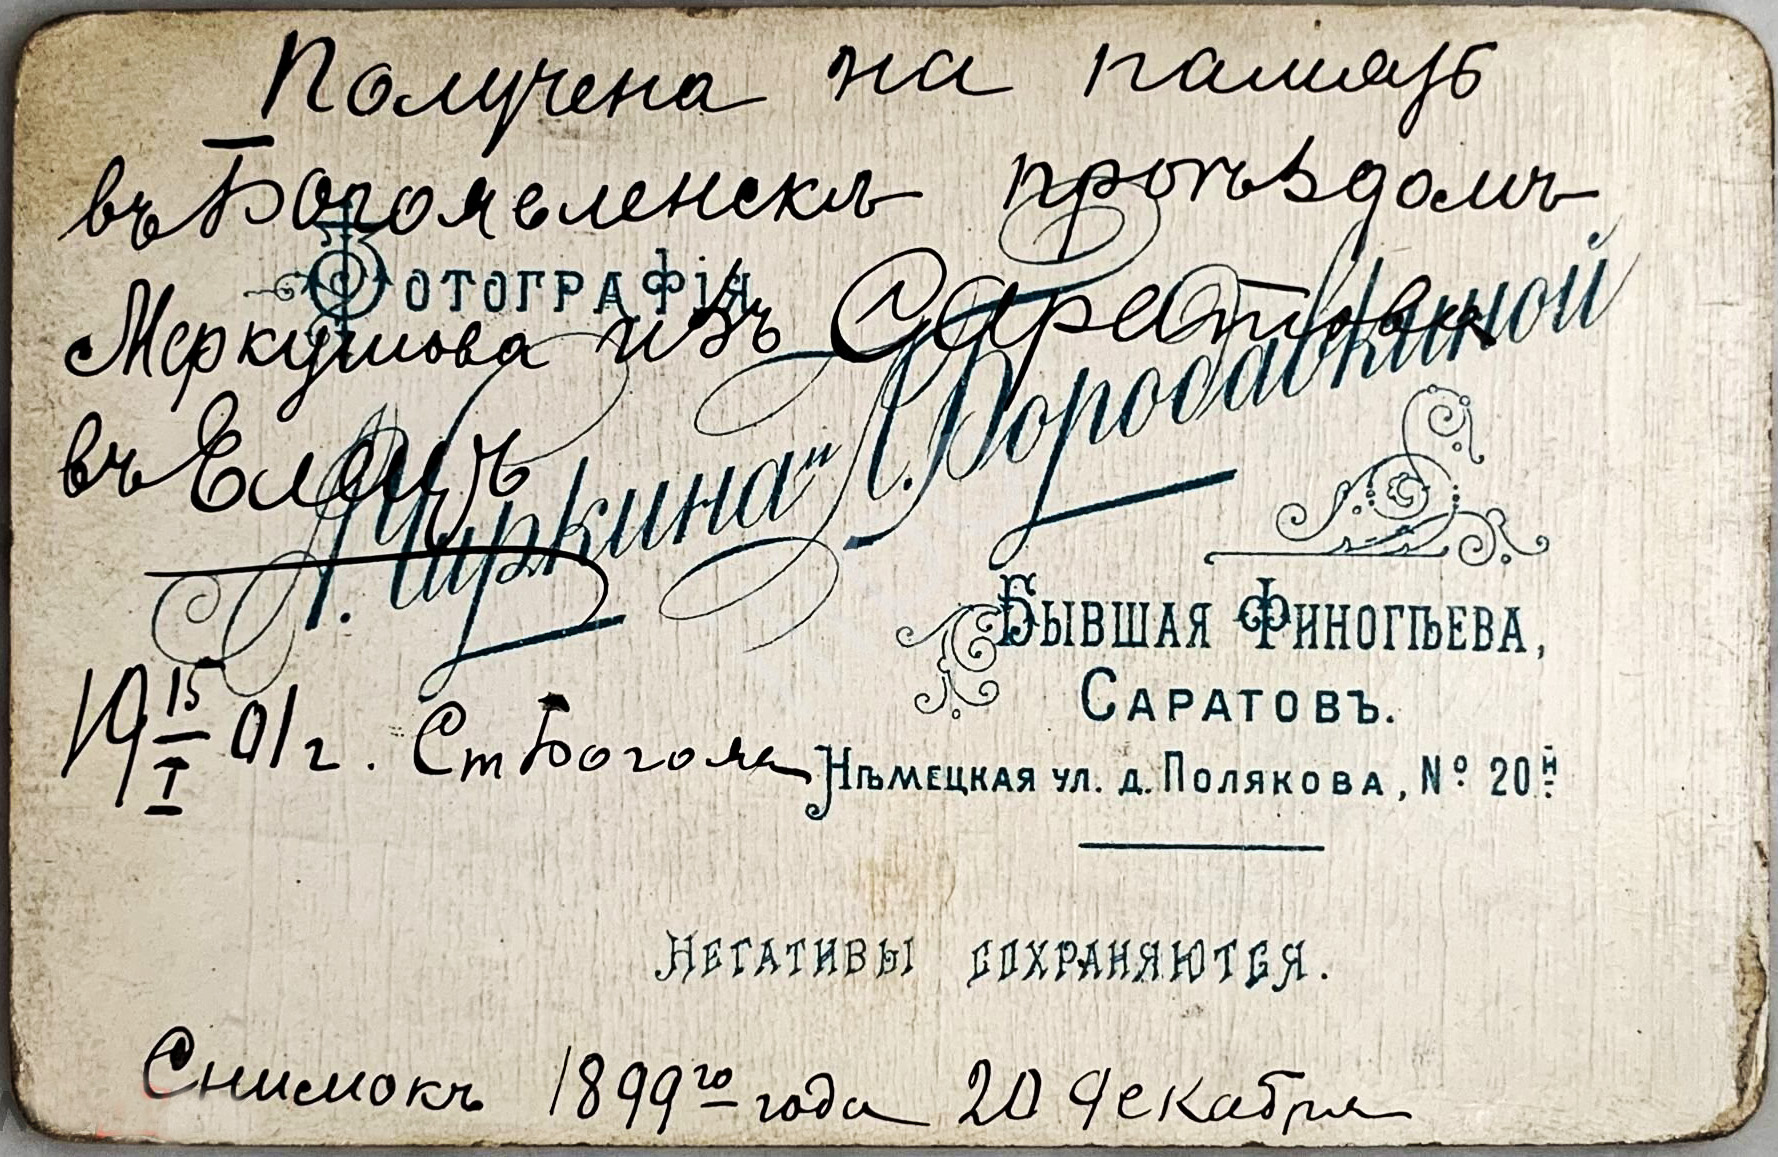 Получена на память
въ Богоявленскѣ проѣздомъ
Меркушова изъ Саратова
въ Елецъ
ФОТОГРАФІЯ
А. Чиркина и Л. Бородавкиной
БЫВШАЯ ФИНОГѢЕВА,
САРАТОВЪ.
НѢМЕЦКАЯ УЛ. Д. ПОЛЯКОВА, № 20й
19 15/I 01 г. Ст Богоя
НЕГАТИВЫ СОХРАНЯЮТСЯ.
Снимокъ 1899го года 20 декабря